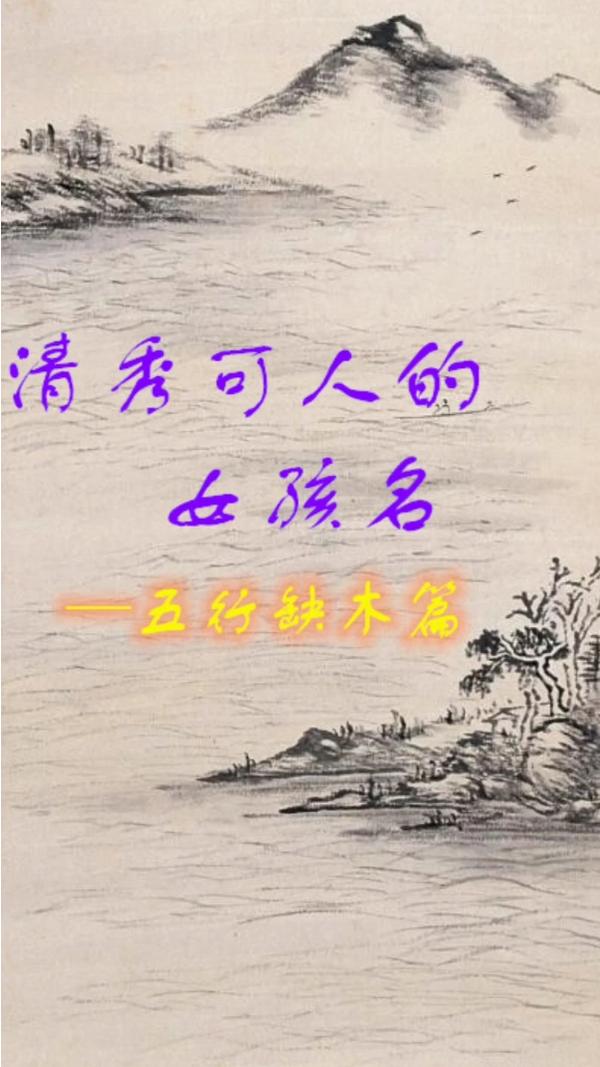 清秀可人的
女孩名
—五行缺木篇